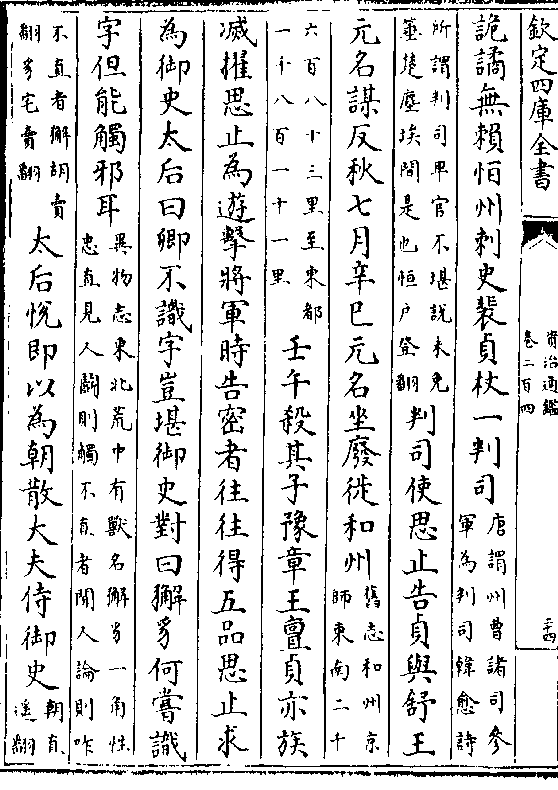 欽定四庫全書
資治通鑑
卷二百四
詭譎無賴恒州刺史裴貞杖一判司
唐謂州曹諸司參
軍為判司韓愈詩
所謂判司卑官不堪說未免
箠楚塵埃間是也恒户登翻
判司使思止告貞與舒王
元名謀反秋七月辛巳元名坐廢徙和州
舊志和州京
師東南二千
六百八十三里至東都
一千八百一十一里
壬午殺其子豫章王亶貞亦族
滅擢思止為遊擊將軍時告密者往往得五品思止求
為御史太后曰卿不識字豈堪御史對曰獬豸何嘗識
字但能觸邪耳
異物志東北荒中有獸名獬豸一角性
忠直見人鬭則觸不直者聞人論則咋
不直者獬胡賣
翻豸宅賣翻
太后悅即以為朝散大夫侍御史
朝直
遥翻